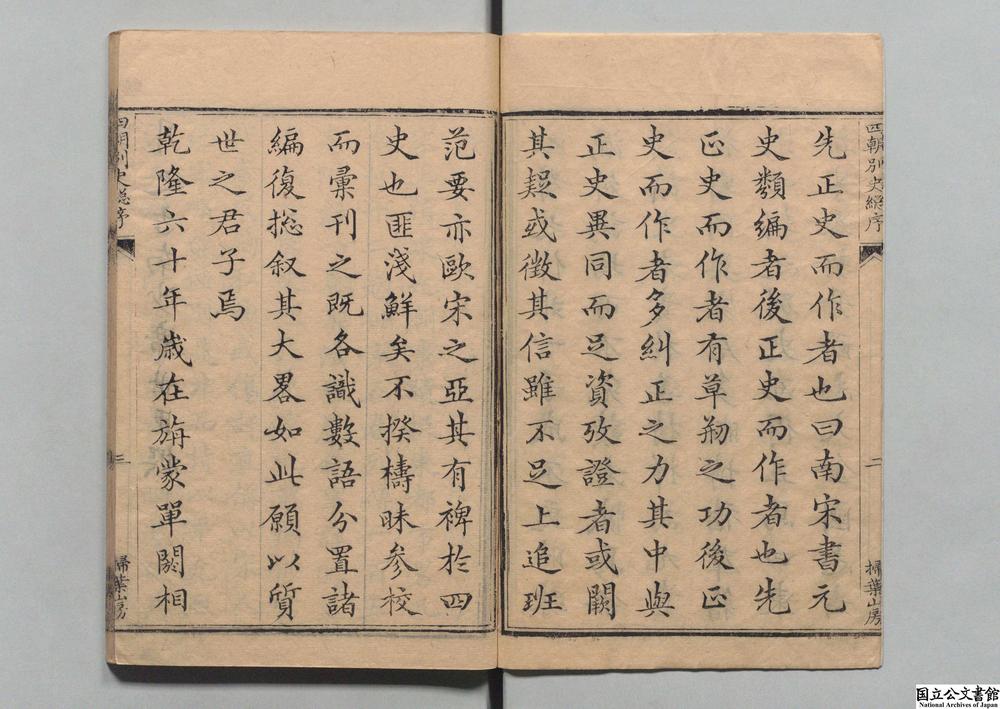 四朝別史總序
二
掃葉山房
先正史而作者也曰南宋書元
史類編者後正史而作者也先
正史而作者有草刱之功後正
史而作者多糾正之力其中與
正史異同而足資攷證者或闕
其疑或徵其信雖不足上追班
范要亦歐宋之亞其有裨於四
史也匪淺鮮矣不揆檮昧參校
而彙刊之既各識數語分置諸
編復捴叙其大畧如此願以質
世之君子焉
乾隆六十年歲在旃蒙單閼相
四朝別史總序
三
掃葉山房
国立公文書館
National Archives of Japan